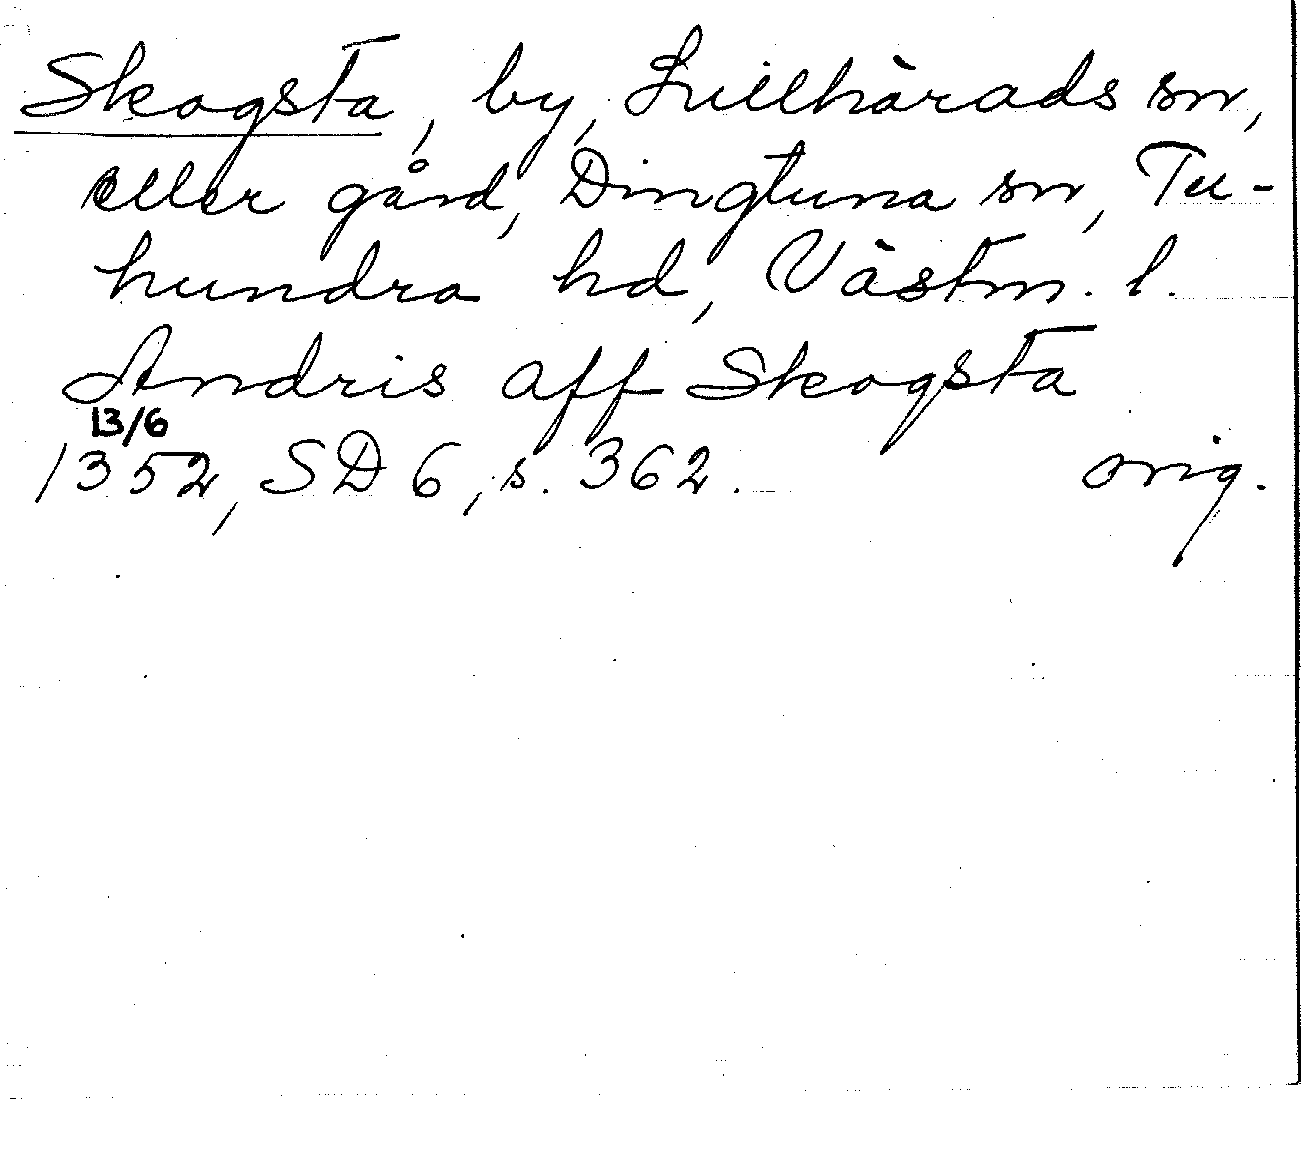 Skogsta, by, Lillhärads sn,
eller gård, Dingtuna sn, Tu-
hundra hd, Västm. l.
Andris aff Skogsta
13/6
1352, SD 6, s. 362. orig.